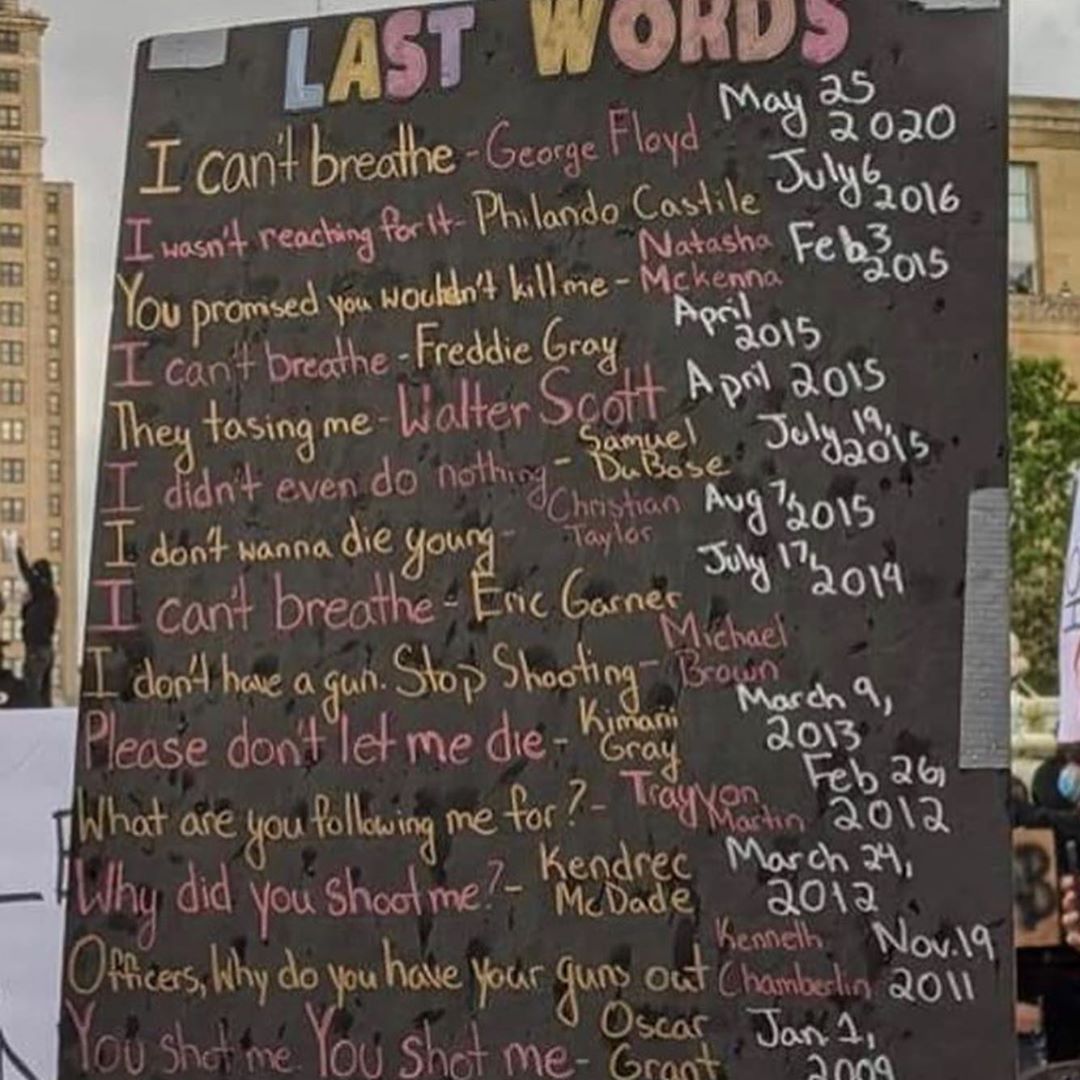 LAST WORDS
I can't breathe - George Floyd May 25 2020
I wasn't reaching for it - Philando Castile July 6 2016
You promised you wouldn't kill me - Natasha Mckenna Feb 3 2015
I can't breathe - Freddie Gray April 2015
They tasing me - Walter Scott April 2015
I didn't even do nothing - Samuel DuBose July 19, 2015
I don't wanna die young - Christian Taylor Aug 7, 2015
I can't breathe - Eric Garner July 17, 2014
I don't have a gun. Stop Shooting - Michael Brown
Please don't let me die - Kimani Gray March 9, 2013
What are you following me for? - Trayvon Martin Feb 26, 2012
Why did you shoot me? - Kendrec McDade March 24, 2012
Officers, Why do you have your guns out Kenneth Chamberlin Nov. 19 2011
You shot me. You shot me - Oscar Grant Jan 1, 2009